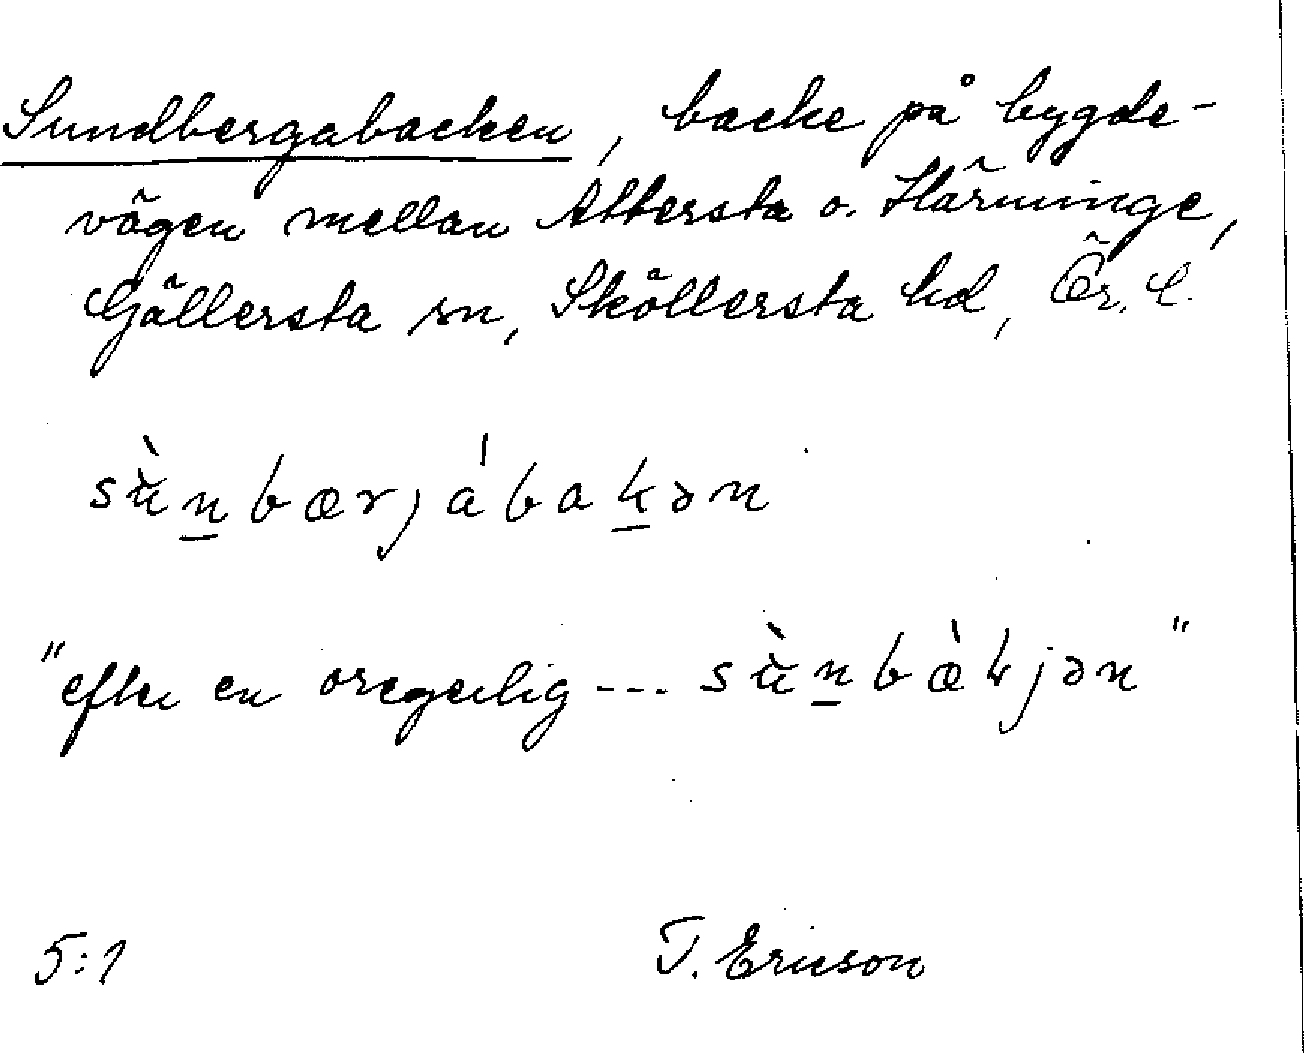 Sundbergabacken, backe på bygde-
vägen mellan Attersta o. Härminge,
Gällersta sn, Sköllersta hd, Ör. l.
sùn̲bærjábak̲ən
"efter en oregerlig --- sùn̲bæ̀kjən"
5:1 T. Ericson